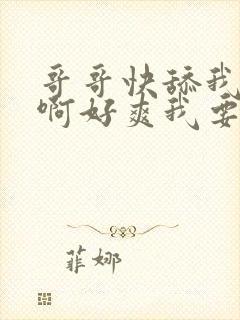 哥哥快舔我
啊好爽我要
菲娜